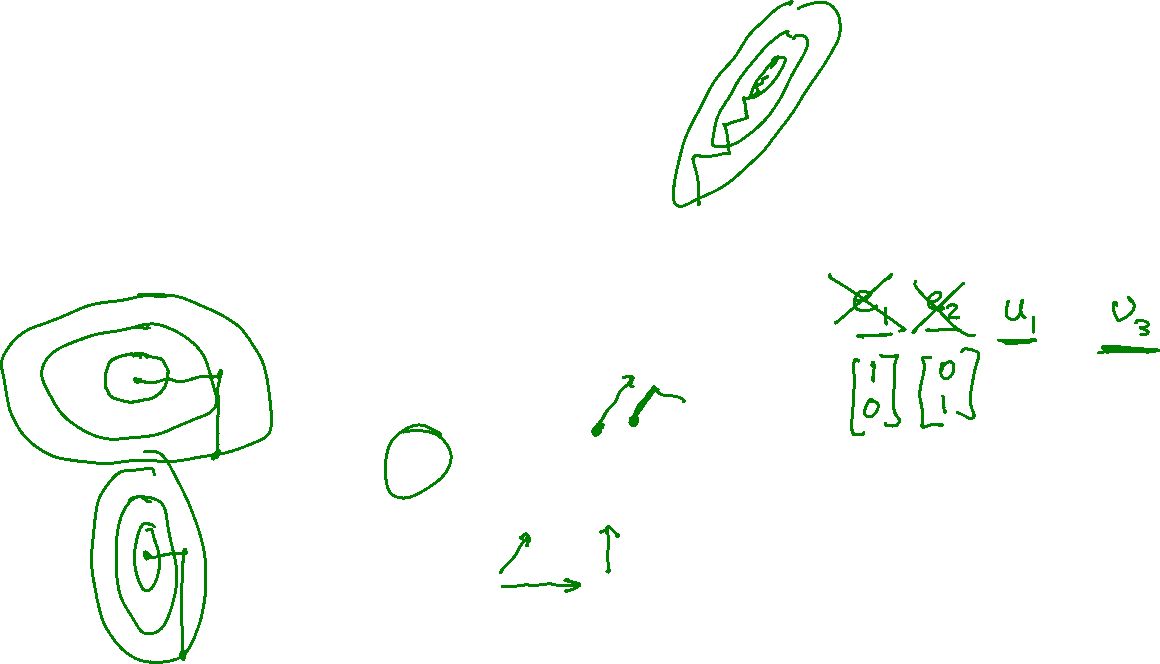 e₁ e₂ u₁ υ₃
[1 0] [0 1]